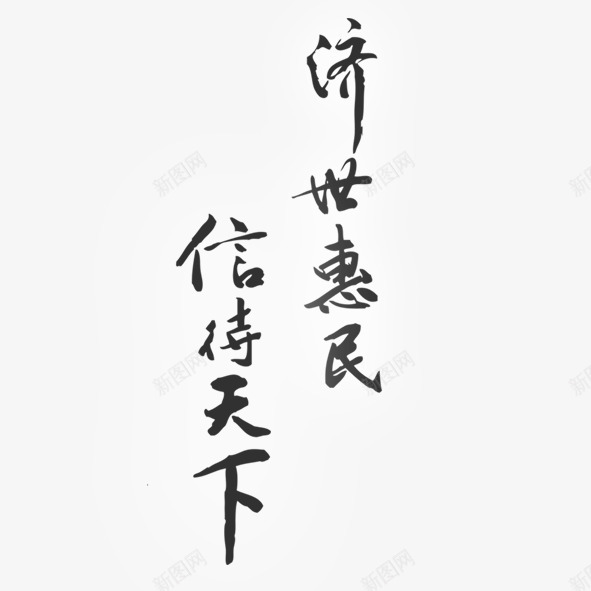 济世惠民
信待天下
新图网
新图网
新图网
新图网
新图网
新图网
新图网
新图网
新图网